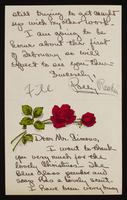 still trying to get caught
up with my other work.
I am going to be
home about the first
February, so will
expect to see you then.
Sincerely,
Kelly
Dear Mr. Simons,
I want to thank
you very much for the
lovely Christmas. The
blue Grass powder and
soap has a lovely scent.
I have been very busy